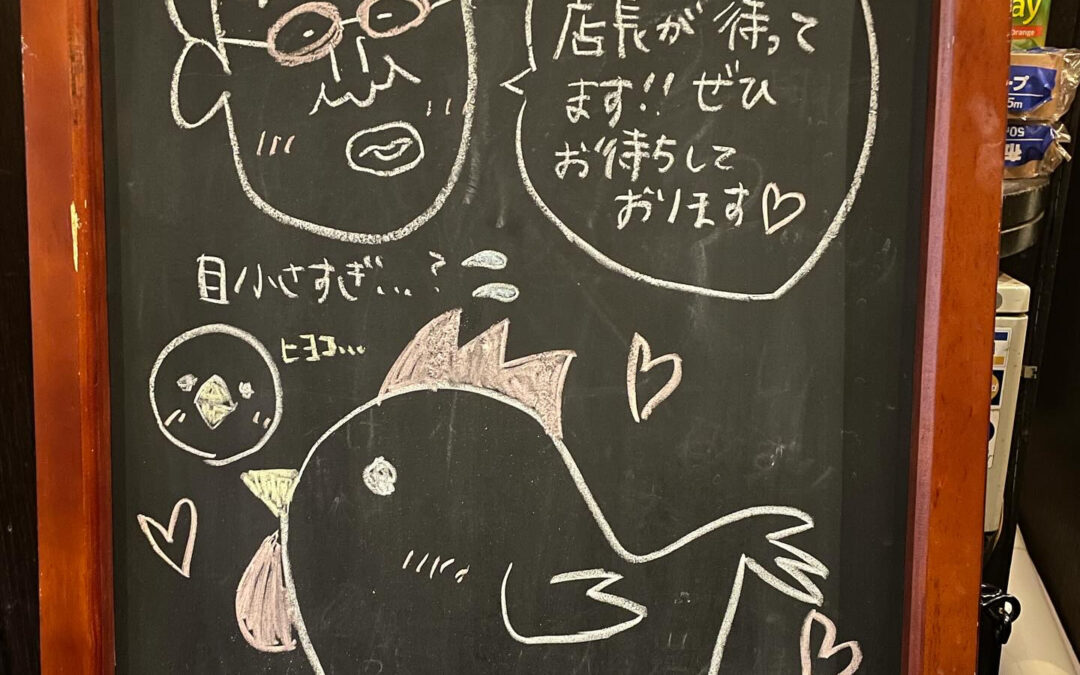 店長が待って
ます!! ぜひ
お待ちして
おります♡
目小さすぎ...?
ヒヨコ...
ay
Orange
ープ
5m
50
布